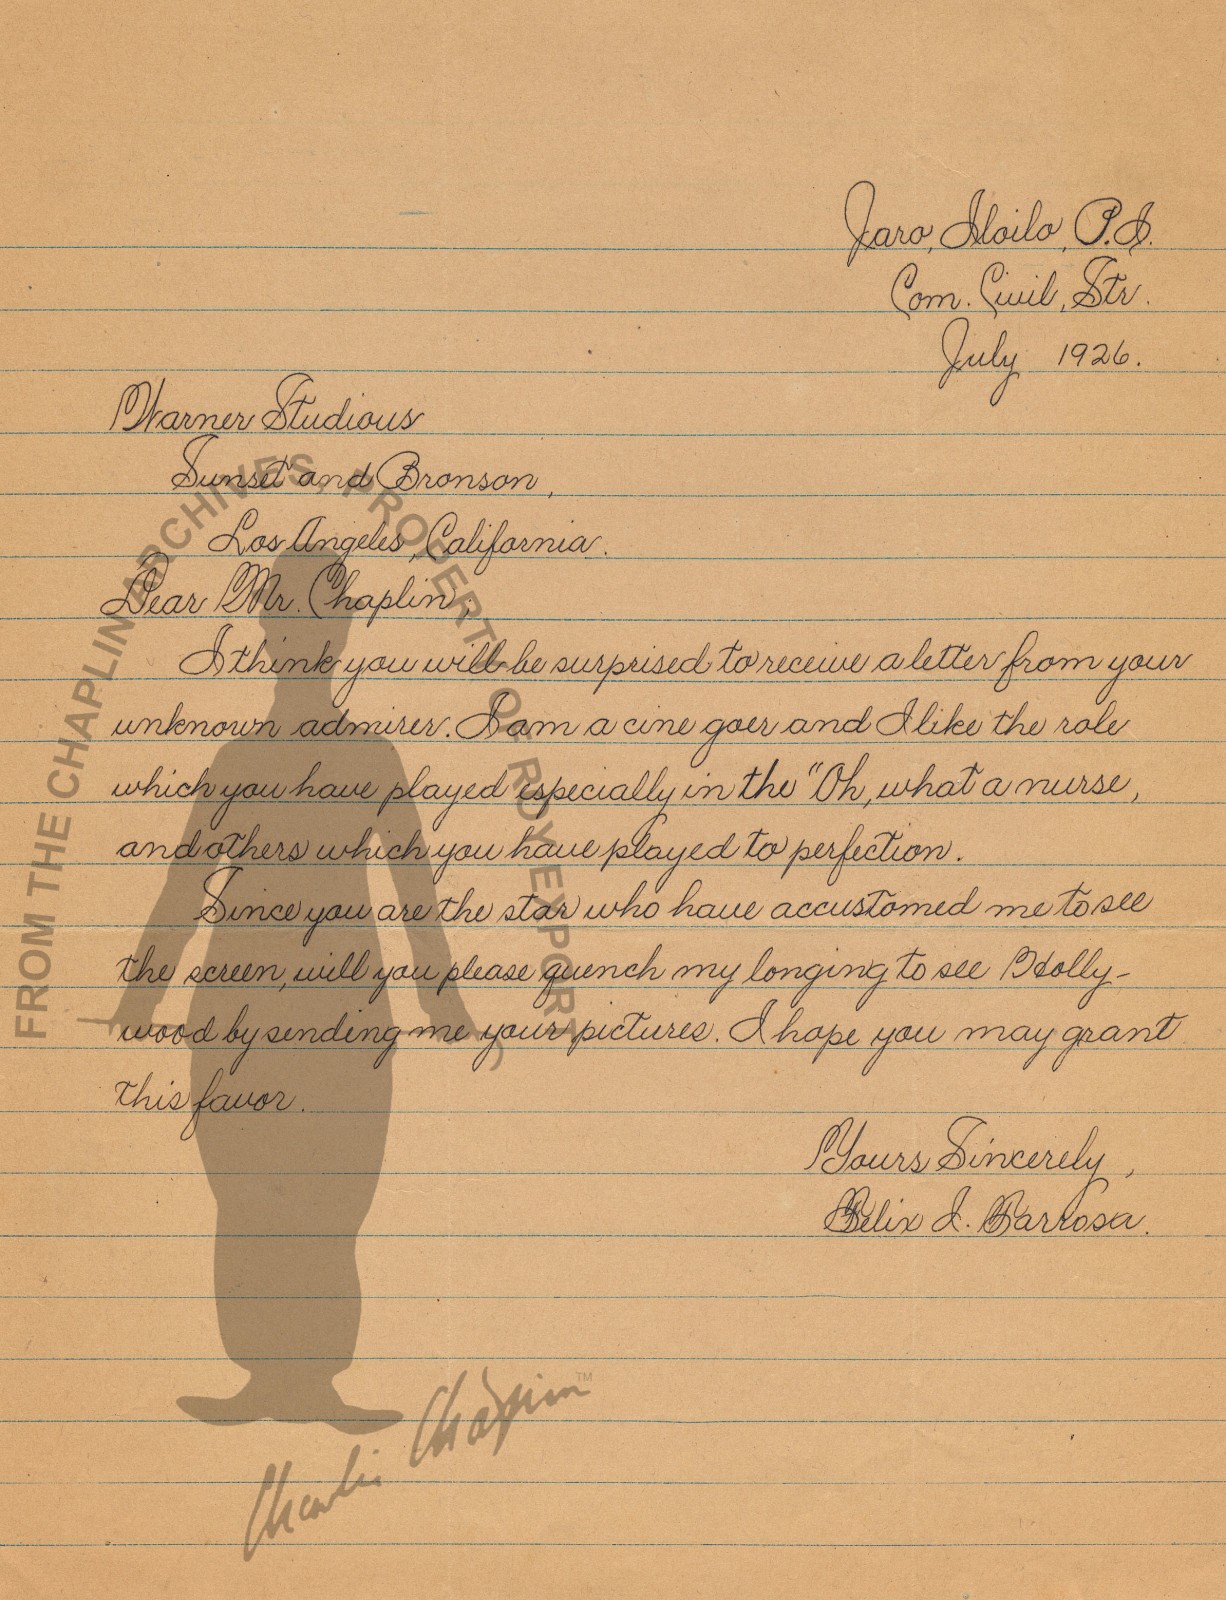 Jaro, Iloilo, P.I.
Com. Civil, Str.
July 1926.
Warner Studious
Sunset and Bronson,
Los Angeles, California.
Dear Mr. Chaplin;
I think you will be surprised to receive a letter from your
unknown admirer. I am a cine goer and I like the role
which you have played especially in the "Oh, what a nurse,
and others which you have played to perfection.
Since you are the star who have accustomed me to see
the screen, will you please quench my longing to see Holly-
wood by sending me your pictures. I hope you may grant
this favor.
Yours Sincerely,
Felix I. Barrosa.
FROM THE CHAPLIN ARCHIVES, PROPERTY OF ROY EXPORT
Charlie Chaplin™